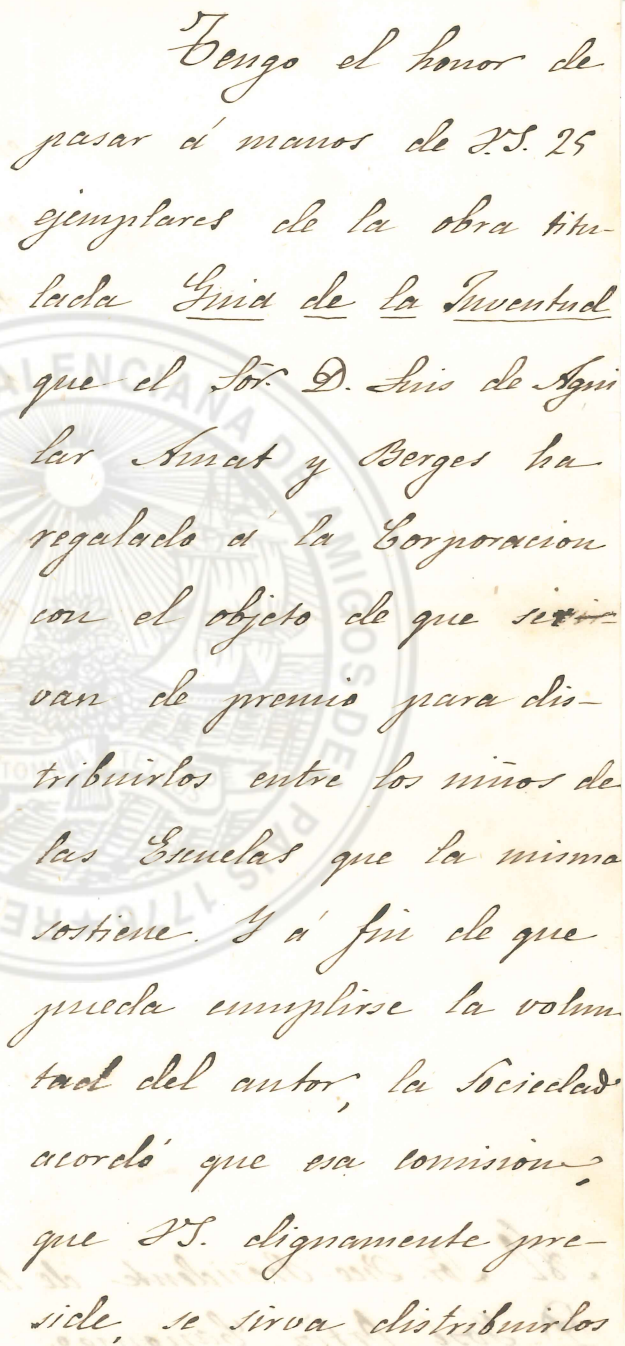 Tengo el honor de
pasar á manos de V.S. 25
ejemplares de la obra titu-
lada Guia de la Juventud
que el Sór. D. Luis de Agui
lar Amat y Berges ha
regalado á la Corporacion
con el objeto de que ser-
van de premio para dis-
tribuirlos entre los niños de
las Escuelas que la misma
sostiene. Y á fin de que
pueda cumplirse la volun
tad del autor, la Sociedad
acordó que esa comision,
que V.S. dignamente pre-
side, se sirva distribuirlos